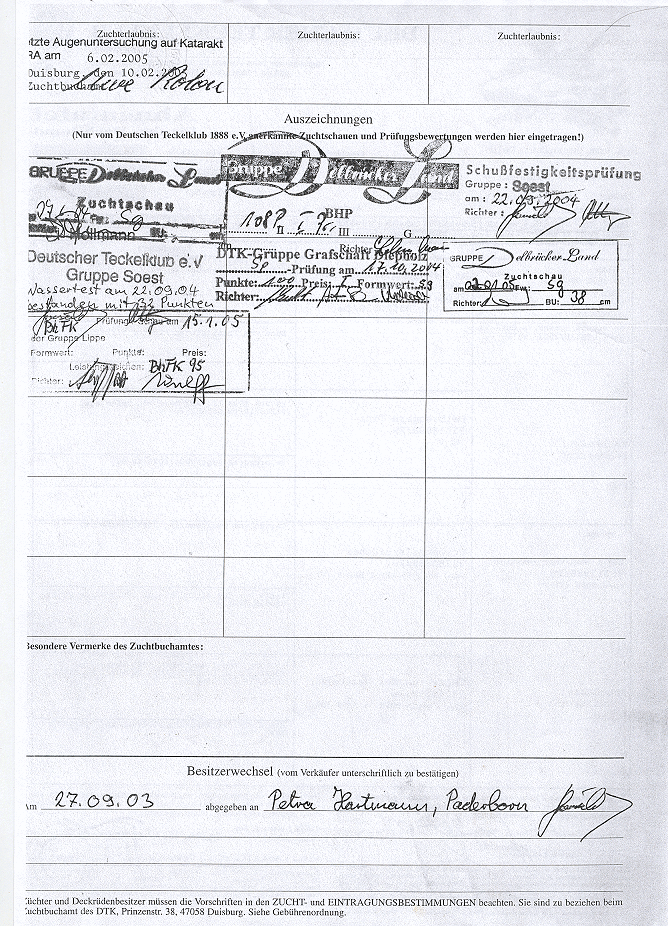 Zuchterlaubnis: Zuchterlaubnis: Zuchterlaubnis:
etzte Augenuntersuchung auf Katarakt
RA am 6.02.2005
Duisburg, den 10.02.
Zuchtbuchamt
Auszeichnungen
(Nur vom Deutschen Teckelklub 1888 e.V. anerkannte Zuchtschauen und Prüfungsbewertungen werden hier eingetragen!)
GRUPPE Delbrücker Land
Zuchtschau
sg
Gruppe Delbrücker Land
BHP
II III G
Richter
Schußfestigkeitsprüfung
Gruppe: Soest
am: 22.09.2004
Richter:
Deutscher Teckelklub e.V
Gruppe Soest
Wassertest am 22.09.04
bestanden mit Punkten
DTK-Gruppe Grafschaft Diepholz
Sp -Prüfung am 17.10.2004
Punkte: 100 Preis: I Formwert: sg
Richter:
GRUPPE Delbrücker-Land
Zuchtschau
am Fw: sg
Richter: BU: 38 cm
BhFK Prüfung am 15.1.05
der Gruppe Lippe
Formwert: Punkte: Preis:
Leistungszeichen: BhFK 95
Richter:
Besondere Vermerke des Zuchtbuchamtes:
Besitzerwechsel (vom Verkäufer unterschriftlich zu bestätigen)
Am 27.09.03 abgegeben an Petra Hartmann, Paderborn
Züchter und Deckrüdenbesitzer müssen die Vorschriften in den ZUCHT- und EINTRAGUNGSBESTIMMUNGEN beachten. Sie sind zu beziehen beim
Zuchtbuchamt des DTK, Prinzenstr. 38, 47058 Duisburg. Siehe Gebührenordnung.